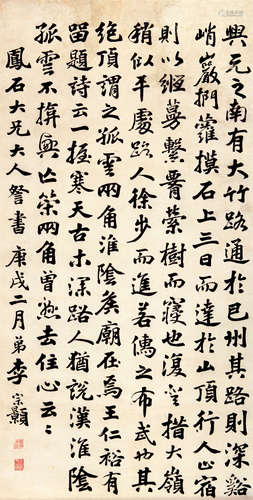 興元之南有大竹路通於巴州其路則深谿
峭巖捫蘿摸石上三日而達於山頂行人止宿
則以緪蔓繫腰縈樹而寢也復登措大嶺
稍似平處路人徐步而進若儒之布武也其
絕頂謂之孤雲兩角淮陰矦廟在焉王仁裕有
留題詩云一握寒天古木深路人猶說漢淮陰
孤雲不揜興亡策兩角曾懸去住心云云
鳳石大兄大人詧書 庚戌二月弟李宗顥